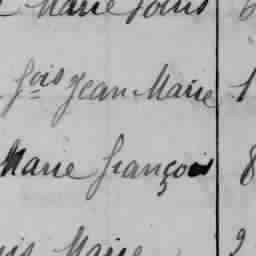 Marie Louis 6
fois Jean Marie 1
Marie françois 8
Marie 2